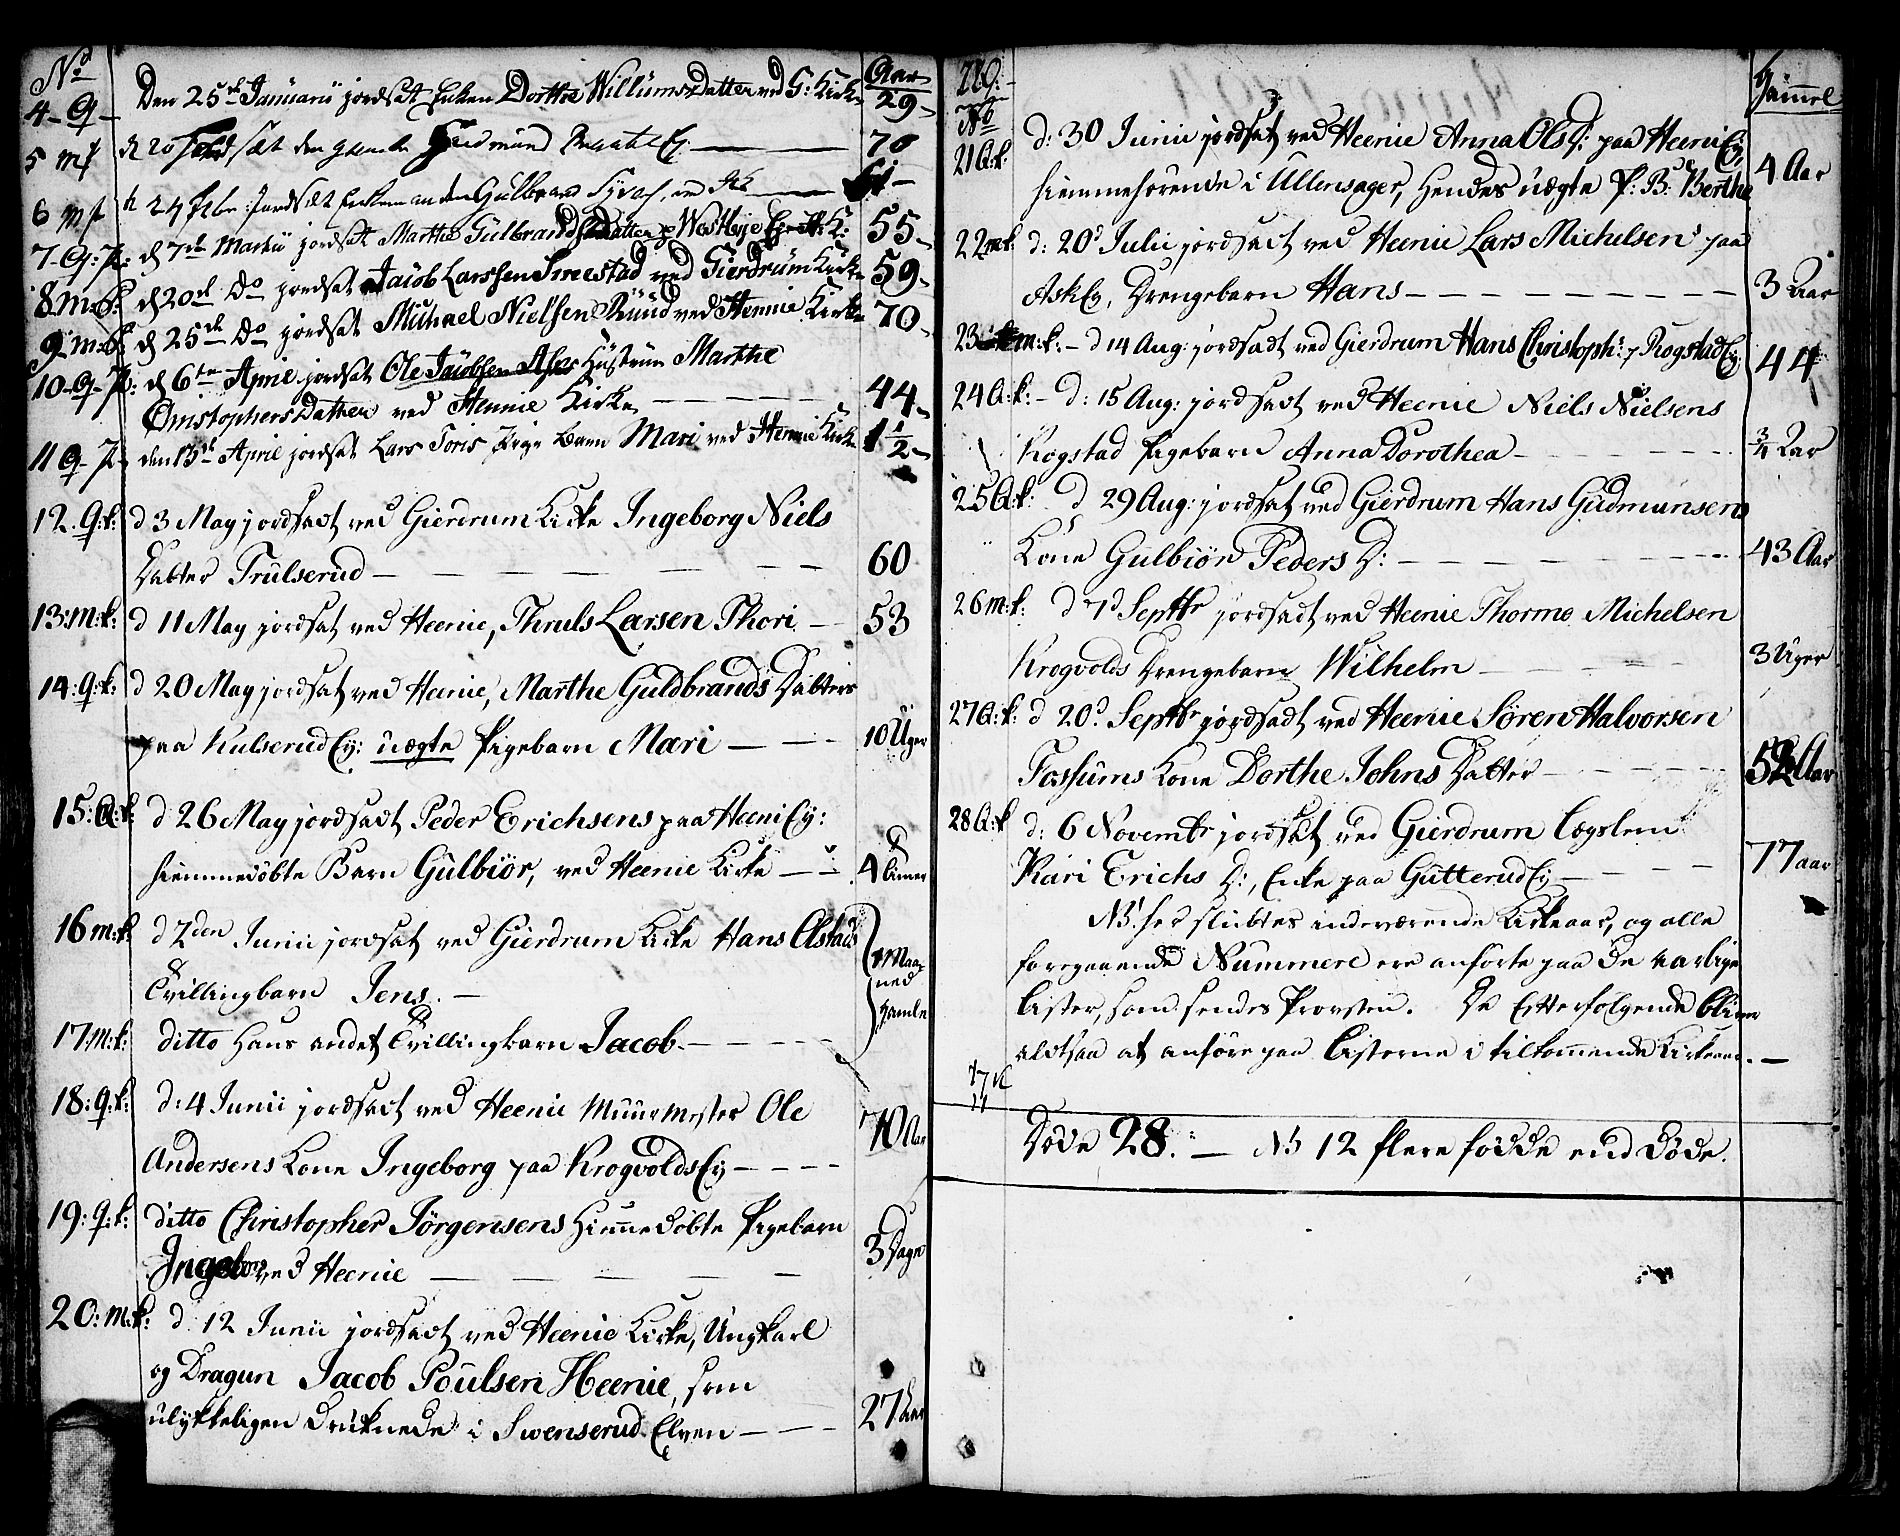 No
Aar
4 - Q - Den 25de Januarii jordsat Enken Dorthe Willums Datter ved G: Kirke 29 -
5 mk d 20 jordsat den gamle Gudmund Ey: 70
6 mk d 24 Febr: jordsat Gulbrand 61 -
7 - Q: k: d 7de Martii jordsat Marthe Gulbrands Datter Westbye Ey: H: K: 55 -
8 M: k: d 20de do jordsat Jacob Larssen Smestad ved Gierdrum Kirke 59 -
9 - m: k: d 25de do jordsat Michael Nielsen Ruud ved Hennie Kirke 70 -
10 - Q - k: d 6te April jordsat Ole Jacobsen Ases Hustrue Marthe
Christophers Datter ved Hennie Kirke 44 -
11 Q - k - den 13de April jordsat Lars Toris Pige Barn Mari ved Hennie Kirke 1 1/2 -
12. Q: k: d 3 May jordsadt ved Gierdrum Kirke Ingeborg Niels
Datter Trulserud - 60
13: M: k: d 11 May jordsat ved Heenie, Thruls Larsen Thori - 53
14: Q: k: d 20 May jordsat ved Heenie, Marthe Guldbrands Datters
paa Kulserud Ey: uægte Pigebarn Mari - 10 Uger
15: Q: k: d 26 May jordsadt Peder Erichsens paa Heeni Ey:
hiemmedøbte Barn Gulbiør, ved Heenie Kirke - 4 Timer
16 m: k: d 2den Junii jordsat ved Gierdrum Kirke Hans Olstads
Tvillingbarn Jens. - 1 Maaned gamle
17: M: k: ditto Hans andet Tvillingbarn Jacob. -
18: Q: k: d: 4 Junii jordsadt ved Heenie Muurmester Ole
Andersens Kone Ingeborg paa Krogvolds Ey - 70 Aar
19: Q: k: ditto Christopher Jörgensens Hiemmedøbte Pigebarn
Ingebor ved Heenie - 3 Dage
20: M: k: d: 12 Junii jordsadt ved Heenie Kirke, Ungkarl
og Dragun Jacob Poulsen Heenie, som
ulykkeligen druknede i Swenserud Elven - 27 Aar
No
Gammel
21 Q: k: d: 30 Junii jordsat ved Heenie Anna Ols D: paa Heeni Ey,
hiemmehørende i Ullensager, hendes uægte P: B: Berthe 4 Aar
22 m: k: d: 20de Julii jordsadt ved Heenie Lars Michelsens paa
Ask Ey, Drengebarn Hans - 3 Aar
23 m: k: - d 14 Aug: jordsadt ved Gierdrum Hans Christoph: Rogstad Ey 44
24 Q: k: - d: 15 Aug: jordsadt ved Heenie Niels Nielsens
Rogstad Pigebarn Anna Dorothea - 3/4 Aar
25 Q: k: d 29 Aug: jordsadt ved Gierdrum Hans Gudmunsens
Kone Gulbiør Peders D: - 43 Aar
26 m: k: d 7d Septbr jordsadt ved Heenie Thormo Michelsen
Krogvolds Drengebarn Wilhelm - 3 Uger
27 Q: k: d 20d Septbr jordsadt ved Heenie Sören Halvorsen
Fossums Kone Dorthe Johns Datter - 52 Aar
28 Q: k d: 6 Novembr jordsat ved Gierdrum Lægslem
Kari Erichs D:, Enke paa Gutterud Ey - 77 aar
NB: her sluttes indeværende Kirkeaar, og alle
foregaaende Nummere ere anførte paa de aarlige
Lister, som sendes Provsten. De Efterfølgende bliver
altsaa at anføre paa Listerne i tilkommende Kirkeaar. -
Døde 28. - NB 12 flere fødde end døde.